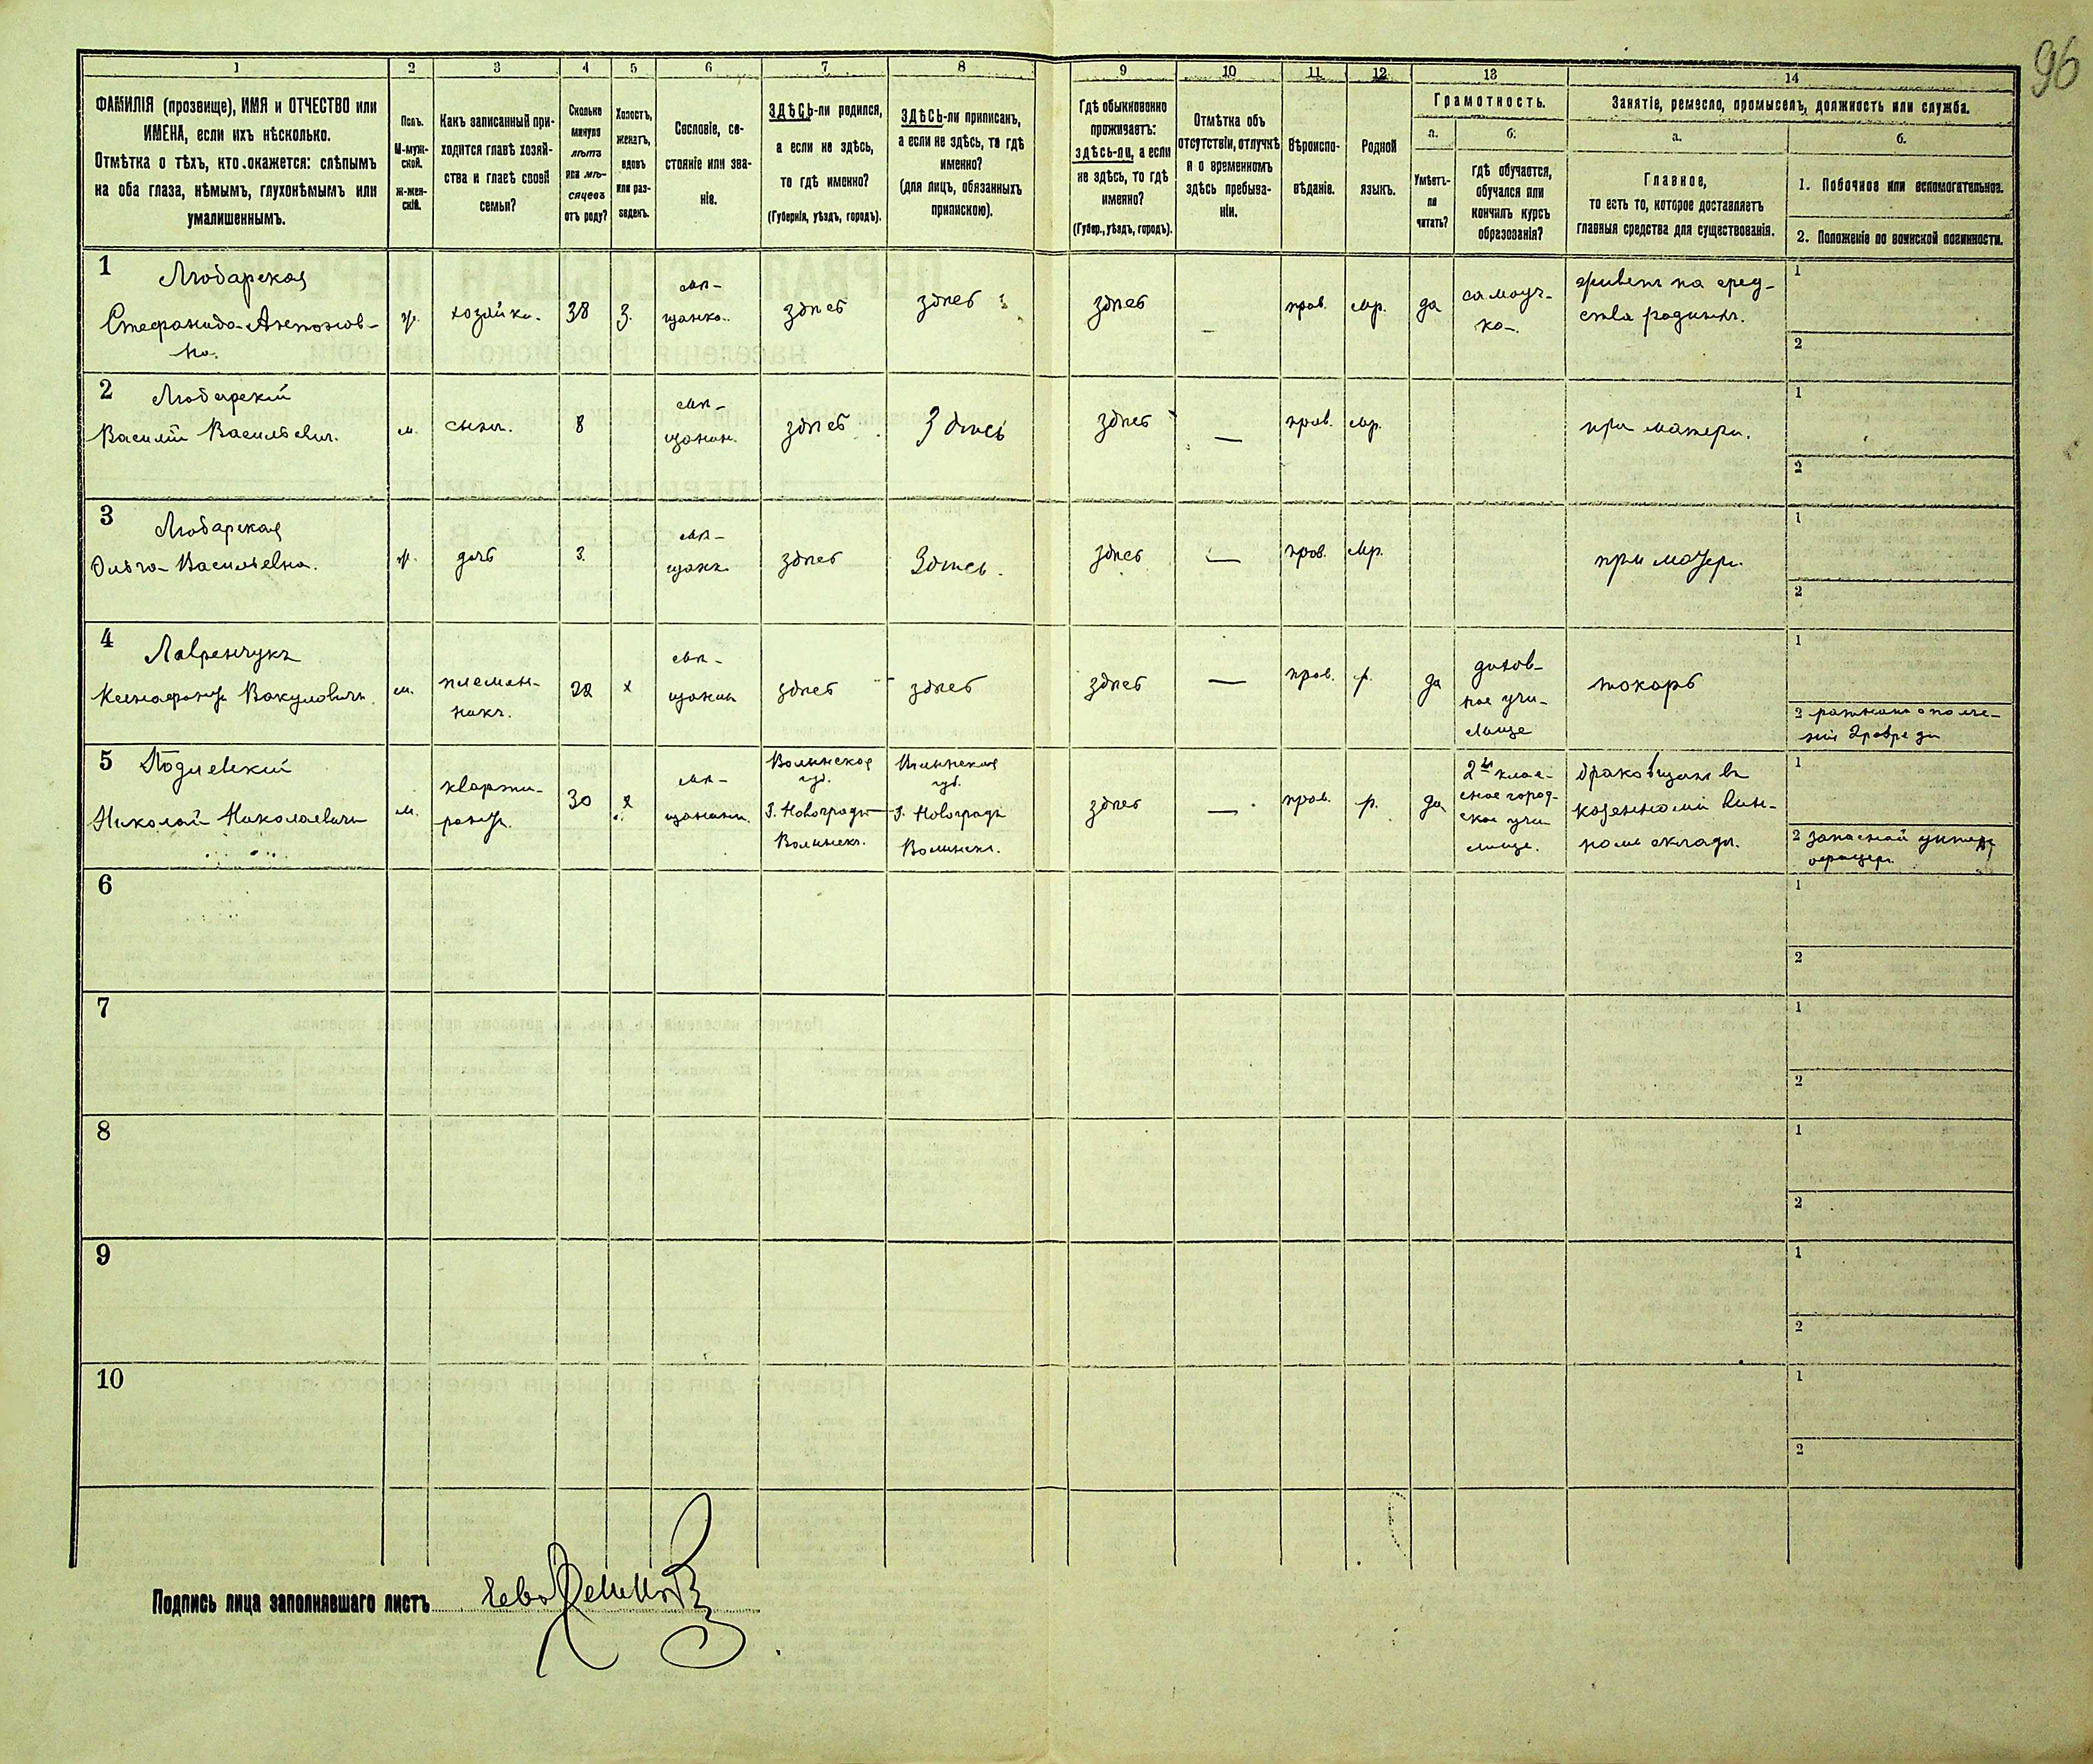 96
1 2 3 4 5 6 7 8 9 10 11 12 13 14
ФАМИЛІЯ (прозвище), ИМЯ и ОТЧЕСТВО или
ИМЕНА, если ихъ нѣсколько.
Отмѣтка о тѣхъ, кто окажется: слѣпымъ
на оба глаза, нѣмымъ, глухонѣмымъ или
умалишеннымъ.
Полъ.
М-муж-
ской.
Ж-жен-
скій.
Какъ записанный при-
ходится главѣ хозяй-
ства и главѣ своей
семьи?
Сколько
минуло
лѣтъ
или мѣ-
сяцевъ
отъ роду?
Холостъ,
женатъ,
вдовъ
или раз-
веденъ.
Сословіе, со-
стояніе или зва-
ніе.
ЗДѢСЬ-ли родился,
а если не здѣсь,
то гдѣ именно?
(Губернія, уѣздъ, городъ).
ЗДѢСЬ-ли приписанъ,
а если не здѣсь, то гдѣ
именно?
(для лицъ, обязанныхъ
припискою).
Гдѣ обыкновенно
проживаетъ:
здѣсь-ли, а если
не здѣсь, то гдѣ
именно?
(Губер., уѣздъ, городъ).
Отмѣтка объ
отсутствіи, отлучкѣ
и о временномъ
здѣсь пребыва-
ніи.
Вѣроиспо-
вѣданіе.
Родной
языкъ.
Грамотность.
а.
Умѣетъ-
ли
читать?
б.
гдѣ обучается,
обучался или
кончилъ курсъ
образованія?
Занятіе, ремесло, промыселъ, должность или служба.
а.
Главное,
то есть то, которое доставляетъ
главныя средства для существованія.
б.
1. Побочное или вспомогательное.
2. Положеніе по воинской повинности.
1
Любарская
Стефанида Антонов-
на.
ж.
хозяйка.
38
з.
мѣ-
щанка.
здѣсь
здѣсь
здѣсь
—
прав.
мр.
да
самоуч-
ка.
живетъ на сред-
ства родныхъ.
1
2
2
Любарскій
Василій Васильевич.
м.
сынъ.
8
мѣ-
щанин.
здѣсь
Здѣсь
здѣсь
—
прав.
мр.
при матери.
1
2
3
Любарская
Ольга Васильевна.
ж.
дочь
3.
мѣ-
щанк.
здѣсь
Здѣсь.
здѣсь
—
прав.
мр.
при матери.
1
2
4
Лавренчукъ
Ксенофонтъ Вакуловичъ.
м.
племян-
никъ.
22
х
мѣ-
щанин
здѣсь
здѣсь
здѣсь
—
прав.
р.
да
духов-
ное учи-
лище
токарь
1
2 ратникъ ополче-
нія 2 разряда
5
м.
кварти-
рантъ.
30
х
мѣ-
щанинъ.
Волынская
губ.
Г. Новоградъ
Волынскъ.
Волынская
губ.
Г. Новоградъ
Волынскъ.
Николай Николаевичъ
здѣсь
—
прав.
р.
да
2хъ клас-
сное город-
ское учи-
лище.
браковщикъ въ
казенномъ вин-
номъ складѣ.
1
2 запасной унтеръ
офицеръ.
6
1
2
7
1
2
8
1
2
9
1
2
10
1
2
Подпись лица заполнявшаго листъ